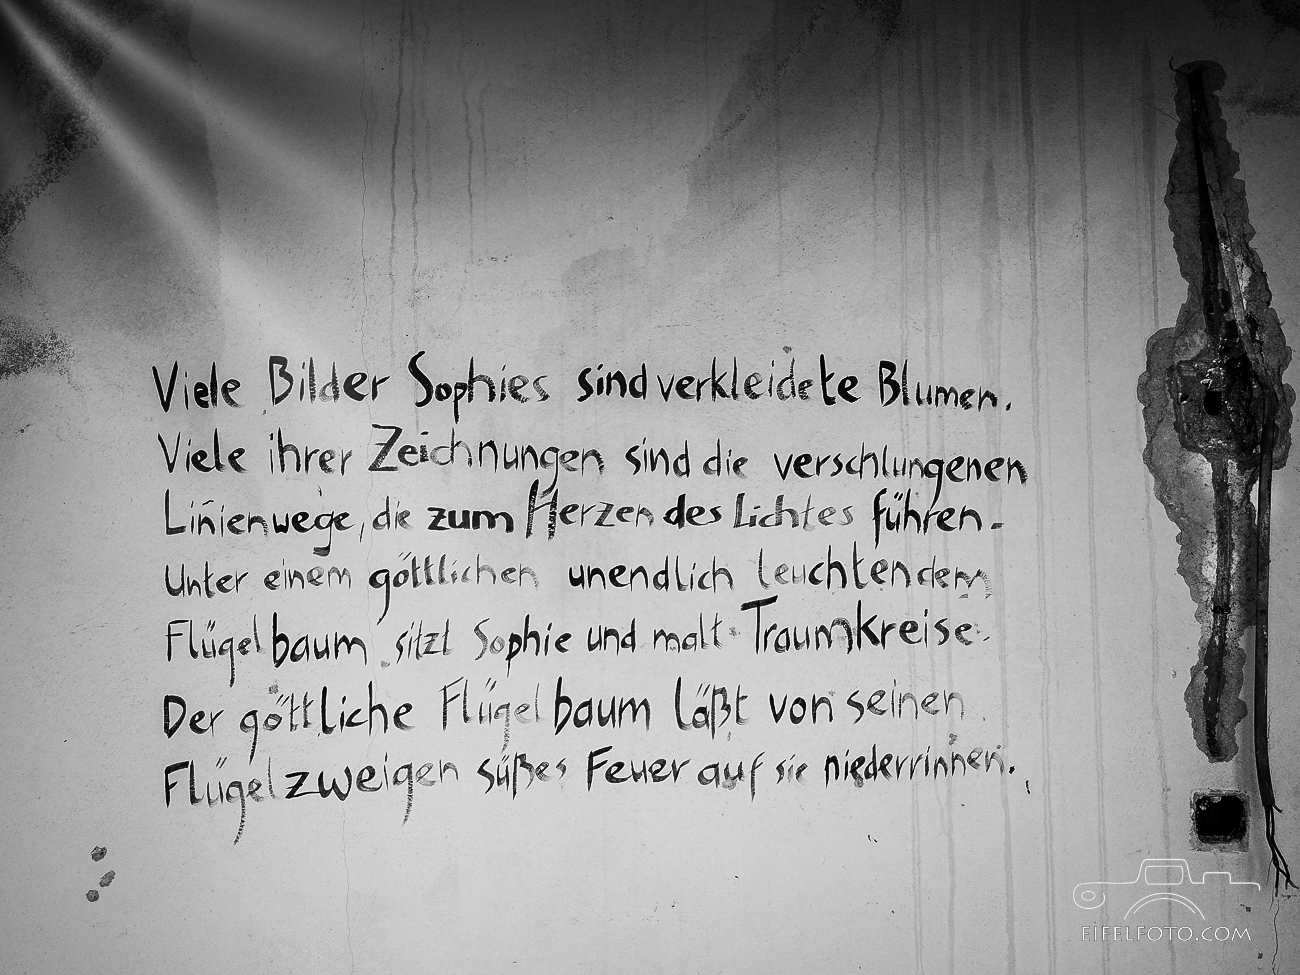 Viele Bilder Sophies sind verkleidete Blumen.
Viele ihrer Zeichnungen sind die verschlungenen
Linienwege, die zum Herzen des Lichtes führen.
Unter einem göttlichen unendlich leuchtendem
Flügelbaum sitzt Sophie und malt Traumkreise.
Der göttliche Flügelbaum läßt von seinen
Flügelzweigen süßes Feuer auf sie niederrinnen.
EIFELFOTO.COM